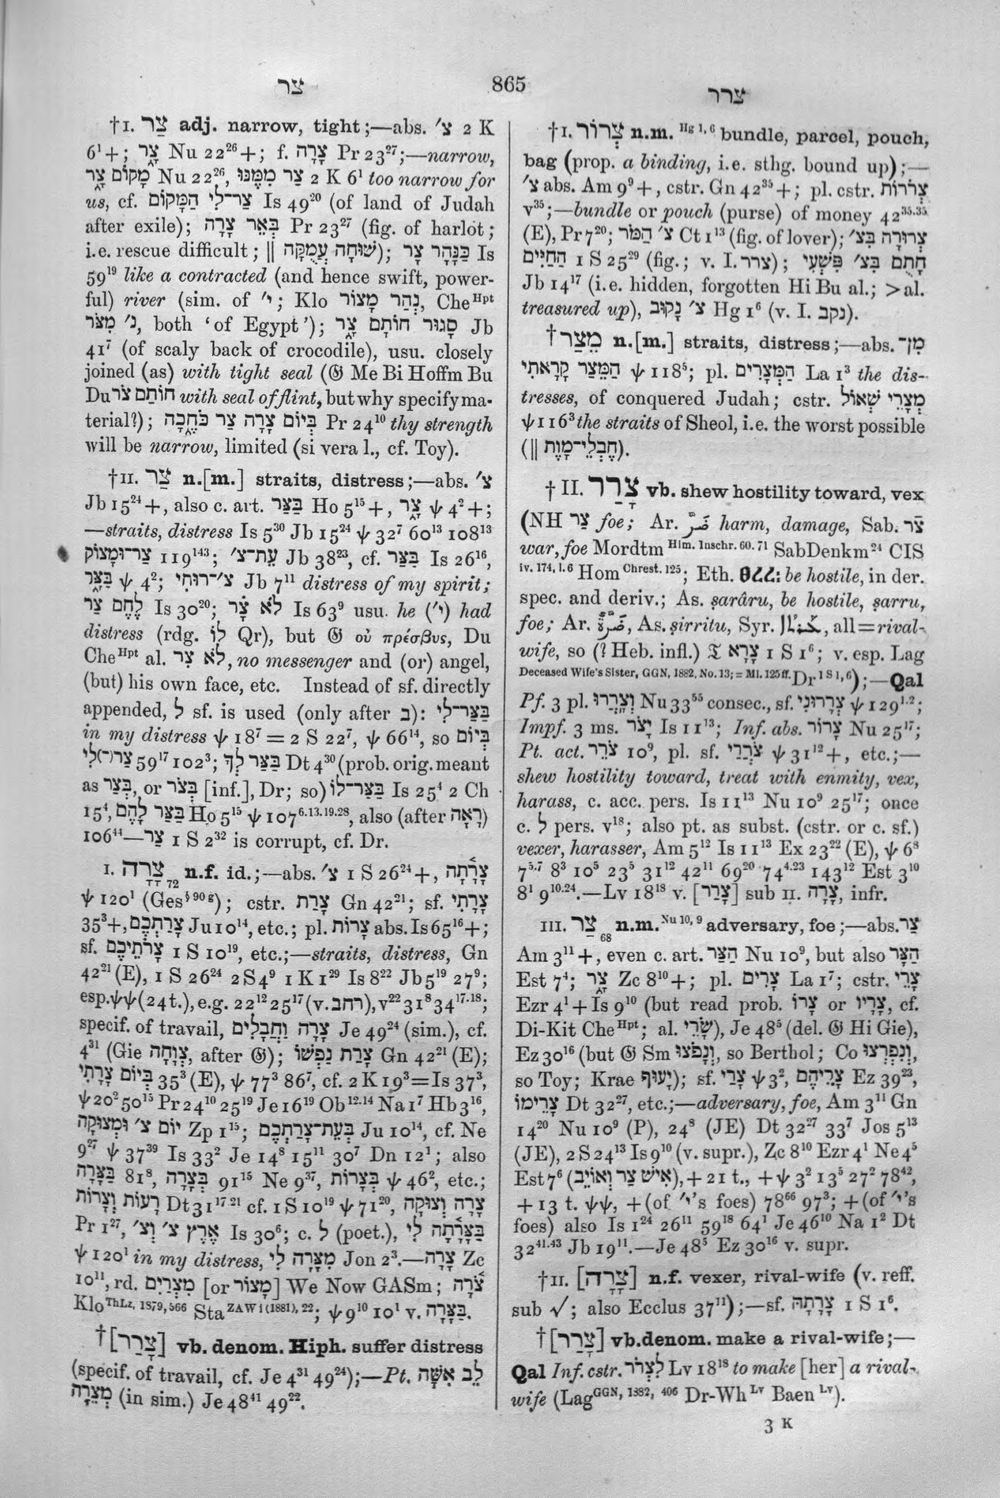 צר
865
צרר
†I. צַר adj. narrow, tight;—abs. צ׳ 2 K
6¹+; צָר Nu 22²⁶+; f. צָרָה Pr 23²⁷;—narrow,
מָקוֹם צָר Nu 22²⁶, צַר מִמֶּנּוּ 2 K 6¹ too narrow for
us, cf. צַר־לִי הַמָּקוֹם Is 49²⁰ (of land of Judah
after exile); בְּאֵר צָרָה Pr 23²⁷ (fig. of harlot;
i.e. rescue difficult; || שׁוּחָה עֲמֻקָּה); כַּנָּהָר צָר Is
59¹⁹ like a contracted (and hence swift, power-
ful) river (sim. of י׳; Klo נְהַר מָצוֹר, Che Hpt
נ׳ מִצֹר, both ‘of Egypt’); סָגוּר חוֹתָם צָר Jb
41⁷ (of scaly back of crocodile), usu. closely
joined (as) with tight seal (𝔊 Me Bi Hoffm Bu
Du חוֹתַם צֹר with seal of flint, but why specify ma-
terial?); בְּיוֹם צָרָה צַר כֹּחֶכָה Pr 24¹⁰ thy strength
will be narrow, limited (si vera l., cf. Toy).
†II. צַר n.[m.] straits, distress;—abs. צ׳
Jb 15²⁴+, also c. art. בַּצַּר Ho 5¹⁵+, צָר ψ 4²+;
—straits, distress Is 5³⁰ Jb 15²⁴ ψ 32⁷ 60¹³ 108¹³
צַר־וּמָצוֹק 119¹⁴³; עֶת־צ׳ Jb 38²³, cf. בַּצַּר Is 26¹⁶,
בַּצָּר ψ 4²; צ׳־רוּחִי Jb 7¹¹ distress of my spirit;
לֶחֶם צַר Is 30²⁰; לֹא צָר Is 63⁹ usu. he (י׳) had
distress (rdg. לוֹ Qr), but 𝔊 οὐ πρέσβυς, Du
Che Hpt al. לֹא צִר, no messenger and (or) angel,
(but) his own face, etc. Instead of sf. directly
appended, לְ sf. is used (only after בּ): בַּצַּר־לִי
in my distress ψ 18⁷ = 2 S 22⁷, ψ 66¹⁴, so בְּיוֹם
צַר־לִי 59¹⁷ 102³; בַּצַּר לְךָ Dt 4³⁰ (prob. orig. meant
as בְּצַר, or בְּצֹר [inf.], Dr; so) בַּצַּר־לוֹ Is 25⁴ 2 Ch
15⁴, בַּצַּר לָהֶם Ho 5¹⁵ ψ 107⁶·¹³·¹⁹·²⁸, also (after רָאָה)
106⁴⁴—צַר 1 S 2³² is corrupt, cf. Dr.
I. צָרָה 72 n.f. id.;—abs. צ׳ 1 S 26²⁴+, צָרָתָה
ψ 120¹ (Ges §90g); cstr. צָרַת Gn 42²¹; sf. צָרָתִי
35³+, צָרַתְכֶם Ju 10¹⁴, etc.; pl. צָרוֹת abs. Is 65¹⁶+;
sf. צָרֹתֵיכֶם 1 S 10¹⁹, etc.;—straits, distress, Gn
42²¹ (E), 1 S 26²⁴ 2 S 4⁹ 1 K 1²⁹ Is 8²² Jb 5¹⁹ 27⁹;
esp. ψψ (24 t.), e.g. 22¹² 25¹⁷ (v. רחב), v²² 31⁸ 34¹⁷·¹⁸;
specif. of travail, צָרָה וַחֲבָלִים Je 49²⁴ (sim.), cf.
4³¹ (Gie צְוָחָה, after 𝔊); צָרַת נַפְשׁוֹ Gn 42²¹ (E);
בְּיוֹם צָרָתִי 35³ (E), ψ 77³ 86⁷, cf. 2 K 19³=Is 37³,
ψ 20² 50¹⁵ Pr 24¹⁰ 25¹⁹ Je 16¹⁹ Ob¹²·¹⁴ Na 1⁷ Hb 3¹⁶,
יוֹם צ׳ וּמְצוּקָה Zp 1¹⁵; בְּעֵת־צָרַתְכֶם Ju 10¹⁴, cf. Ne
9²⁷ ψ 37³⁹ Is 33² Je 14⁸ 15¹¹ 30⁷ Dn 12¹; also
בַּצָּרָה 81⁸, בְּצָרָה 91¹⁵ Ne 9³⁷, בְּצָרוֹת ψ 46², etc.;
רָעוֹת וְצָרוֹת Dt 31¹⁷·²¹ cf. 1 S 10¹⁹ ψ 71²⁰, צָרָה וְצוּקָה
Pr 1²⁷, אֶרֶץ צ׳ וְצ׳ Is 30⁶; c. לְ (poet.), בַּצָּרָתָה לִּי
ψ 120¹ in my distress, מִצָּרָה לִי Jon 2³.—צָרָה Zc
10¹¹, rd. מִצְרַיִם [or מָצוֹר] We Now GASm; צֹרָה
Klo ThLz, 1879, 566 Sta ZAW i (1881), 22; ψ 9¹⁰ 10¹ v. בַּצָּרָה.
†[צָרַר] vb. denom. Hiph. suffer distress
(specif. of travail, cf. Je 4³¹ 49²⁴);—Pt. לֵב אִשָּׁה
מְצֵרָה (in sim.) Je 48⁴¹ 49²².
†I. צְרוֹר n.m. Hg 1, 6 bundle, parcel, pouch,
bag (prop. a binding, i.e. sthg. bound up);—
צ׳ abs. Am 9⁹+, cstr. Gn 42³⁵+; pl. cstr. צְרֹרוֹת
v³⁵;—bundle or pouch (purse) of money 42³⁵·³⁵
(E), Pr 7²⁰; צ׳ הַמֹּר Ct 1¹³ (fig. of lover); צְרוּרָה בִּצ׳
הַחַיִּים 1 S 25²⁹ (fig.; v. I. צרר); חָתֻם בִּצ׳ פִּשְׁעִי
Jb 14¹⁷ (i.e. hidden, forgotten Hi Bu al.; >al.
treasured up), צ׳ נָקוּב Hg 1⁶ (v. I. נקב).
†מֵצַר n.[m.] straits, distress;—abs. מִן־
הַמֵּצַר קָרָאתִי ψ 118⁵; pl. הַמְּצָרִים La 1³ the dis-
tresses, of conquered Judah; cstr. מְצָרֵי שְׁאוֹל
ψ 116³ the straits of Sheol, i.e. the worst possible
(|| חֶבְלֵי־מָוֶת).
†II. צָרַר vb. shew hostility toward, vex
(NH צַר foe; Ar. ضَرَّ harm, damage, Sab. צֹר
war, foe Mordtm Him. Inschr. 60. 71 SabDenkm²⁴ CIS
iv. 174, 1. 6 Hom Chrest. 125; Eth. ፀረረ: be hostile, in der.
spec. and deriv.; As. ṣarâru, be hostile, ṣarru,
foe; Ar. ضَرَّةٌ, As. ṣirritu, Syr. all=rival-
wife, so (? Heb. infl.) 𝔗 צָרָא 1 S 1⁶; v. esp. Lag
Deceased Wife's Sister, GGN, 1882, No. 13; = Mi. 125 ff. Dr 1 S 1, 6);—Qal
Pf. 3 pl. וְצָרֲרוּ Nu 33⁵⁵ consec., sf. צְרָרוּנִי ψ 129¹·²;
Impf. 3 ms. יָצֹר Is 11¹³; Inf. abs. צָרוֹר Nu 25¹⁷;
Pt. act. צֹרֵר 10⁹, pl. sf. צֹרְרַי ψ 31¹²+, etc.;—
shew hostility toward, treat with enmity, vex,
harass, c. acc. pers. Is 11¹³ Nu 10⁹ 25¹⁷; once
c. לְ pers. v¹⁸; also pt. as subst. (cstr. or c. sf.)
vexer, harasser, Am 5¹² Is 11¹³ Ex 23²² (E), ψ 6⁸
7⁵·⁷ 8³ 10⁵ 23⁵ 31¹² 42¹¹ 69²⁰ 74⁴·²³ 143¹² Est 3¹⁰
8¹ 9¹⁰·²⁴.—Lv 18¹⁸ v. [צָרַר] sub II. צָרָה, infr.
III. צַר 68 n.m. Nu 10, 9 adversary, foe;—abs. צַר
Am 3¹¹+, even c. art. הַצַּר Nu 10⁹, but also הַצָּר
Est 7⁴; צָר Zc 8¹⁰+; pl. צָרִים La 1⁷; cstr. צָרֵי
Ezr 4¹+Is 9¹⁰ (but read prob. צָרוֹ or צָרָיו, cf.
Di-Kit Che Hpt; al. שָׂרֵי), Je 48⁵ (del. 𝔊 Hi Gie),
Ez 30¹⁶ (but 𝔊 Sm וְנָפֹצוּ, so Berthol; Co וְנִפְרְצוּ,
so Toy; Krae יָעוּף); sf. צָרַי ψ 3², צָרֵיהֶם Ez 39²³,
צָרֵימוֹ Dt 32²⁷, etc.;—adversary, foe, Am 3¹¹ Gn
14²⁰ Nu 10⁹ (P), 24⁸ (JE) Dt 32²⁷ 33⁷ Jos 5¹³
(JE), 2 S 24¹³ Is 9¹⁰ (v. supr.), Zc 8¹⁰ Ezr 4¹ Ne 4⁵
Est 7⁶ (אִישׁ צַר וְאוֹיֵב), + 21 t., + ψ 3² 13⁵ 27² 78⁴²,
+ 13 t. ψψ, +(of י׳'s foes) 78⁶⁶ 97³; +(of י׳'s
foes) also Is 1²⁴ 26¹¹ 59¹⁸ 64¹ Je 46¹⁰ Na 1² Dt
32⁴¹·⁴³ Jb 19¹¹.—Je 48⁵ Ez 30¹⁶ v. supr.
†II. [צָרָה] n.f. vexer, rival-wife (v. reff.
sub √; also Ecclus 37¹¹);—sf. צָרָתָהּ 1 S 1⁶.
†[צָרַר] vb.denom. make a rival-wife;—
Qal Inf. cstr. לִצְרֹר Lv 18¹⁸ to make [her] a rival-
wife (Lag GGN, 1882, 406 Dr-Wh Lv Baen Lv).
3 K